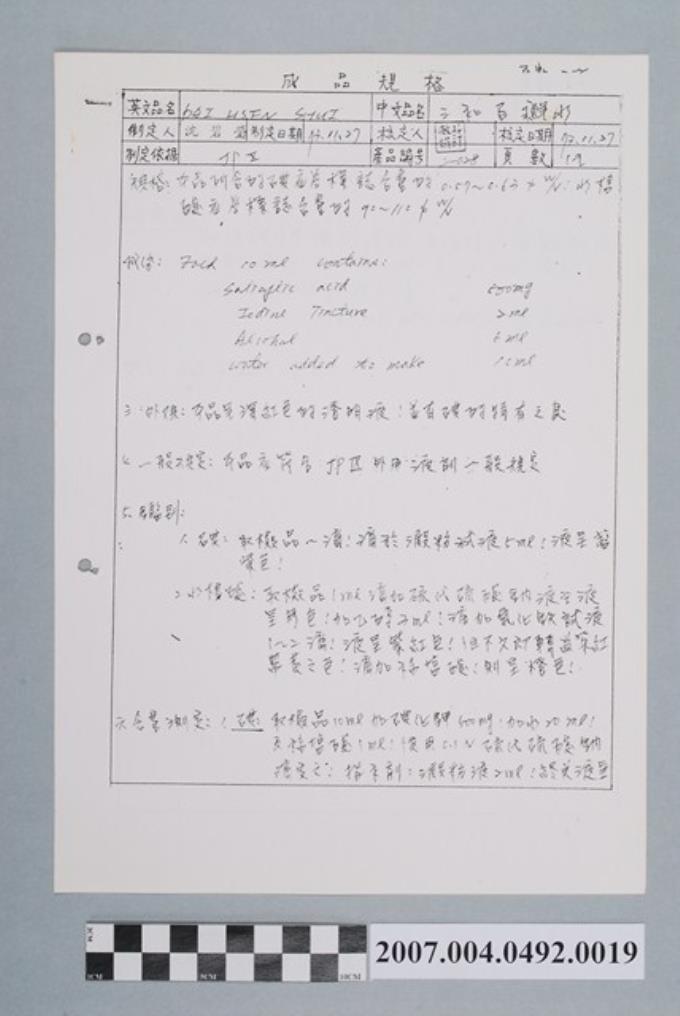 成品規格
英文品名 BAI HSEN SHUI 中文品名 三和百癬水
制定人 沈 制定日期 72.11.27 核定人 核定日期 72.11.27
制定依據 JP 產品編號 頁數
規格：本品所含的碘應為標誌含量的 0.57～0.63% W/V；水楊
酸應為標誌含量的 90～110% W/V
Each 10 ml contains:
Salicylic acid 500mg
Iodine Tincture 2ml
Alcohol
Water added to make 10ml
3.外候：本品呈深紅色的透明液；並有碘的特有之臭
4.一般規定：本品應符合 JP 外用液劑一般規定
5.鑑別：
1.碘：取檢品一滴；滴於澱粉試液5ml；液呈藍
紫色；
2.水楊酸：取檢品1ml滴加硫代硫酸鈉液至液
呈無色；加乙醇2ml；滴加氯化鐵試液
1~2滴；液呈紫紅色；
之色；滴加稀鹽酸；則呈橙色；
六.含量測定：1.碘：取檢品10ml加碘化鉀500mg；加水20ml；
及稀鹽酸1ml；使用0.1N硫代硫酸鈉
液定之；指示劑：澱粉液2ml；終點液呈
2007.004.0492.0019